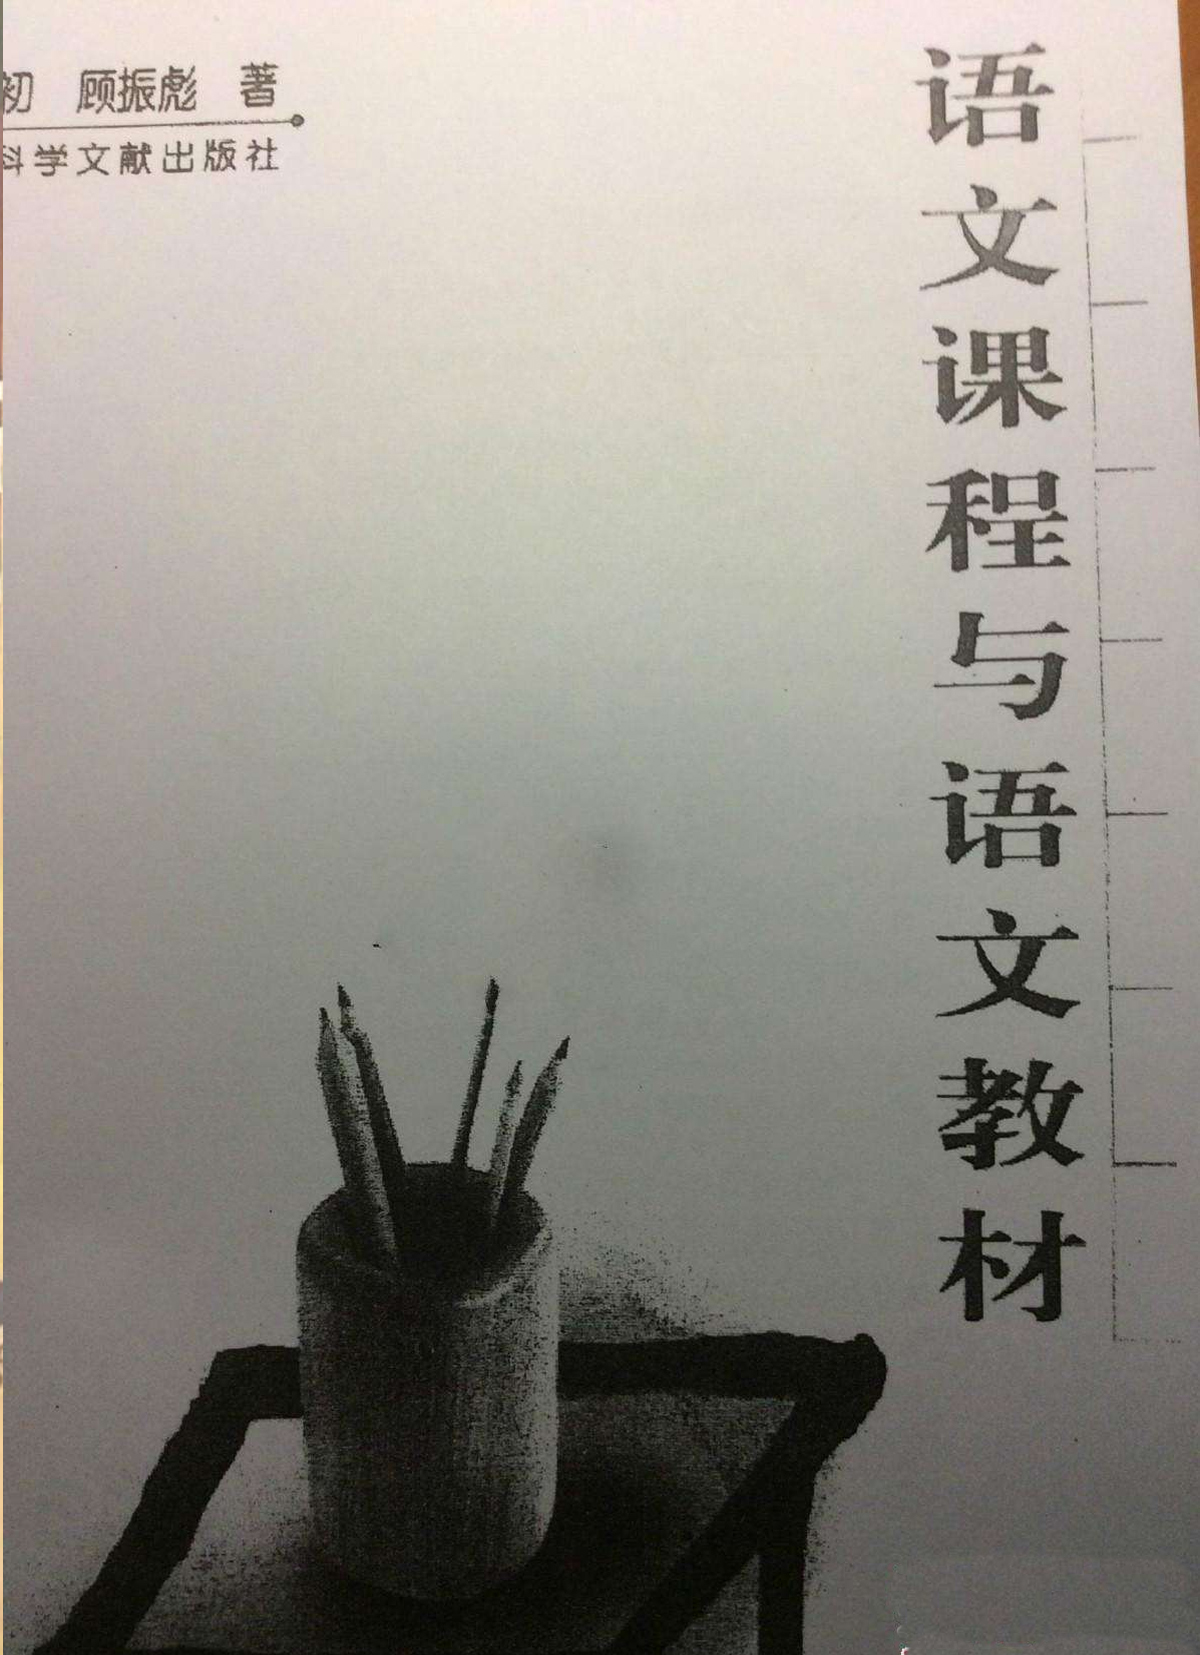 初 顾振彪 著
科学文献出版社
语文课程与语文教材